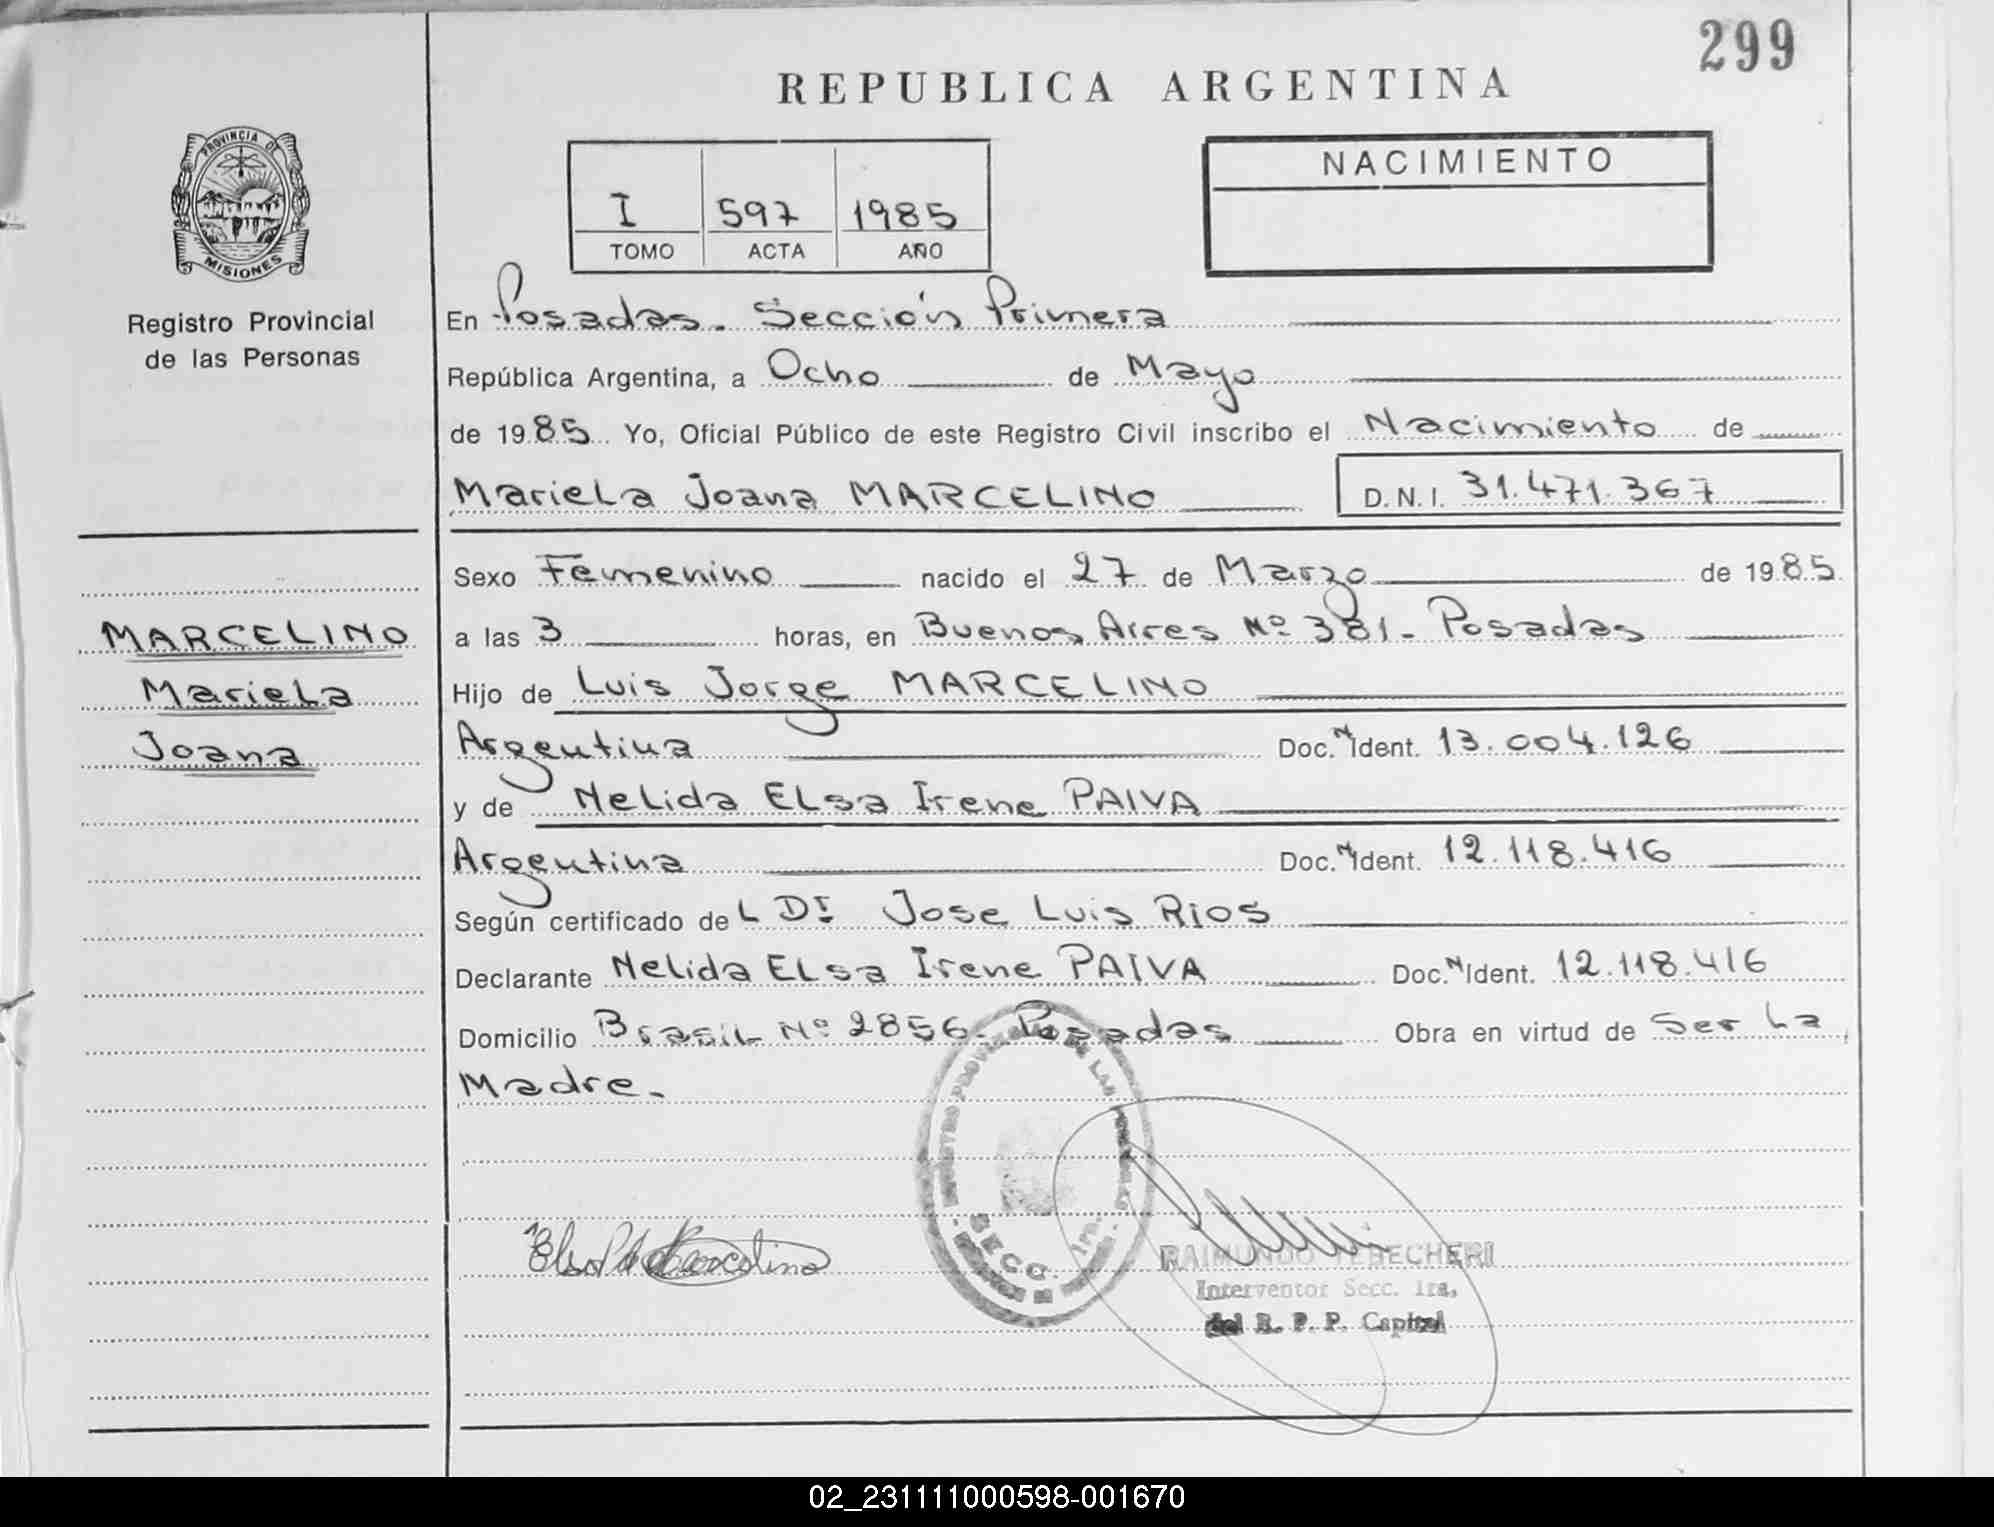 299
REPUBLICA ARGENTINA
PROVINCIA DE
MISIONES
Registro Provincial
de las Personas
I 597 1985
TOMO ACTA AÑO
NACIMIENTO
En Posadas. Sección Primera
República Argentina, a Ocho de Mayo
de 1985 Yo, Oficial Público de este Registro Civil inscribo el Nacimiento de
Mariela Joana MARCELINO D.N.I. 31.471.367
MARCELINO
Mariela
Joana
Sexo Femenino nacido el 27 de Marzo de 1985
a las 3 horas, en Buenos Aires Nº 381 - Posadas
Hijo de Luis Jorge MARCELINO
Argentina Doc. N Ident. 13.004.126
y de Nelida Elsa Irene PAIVA
Argentina Doc. N Ident. 12.118.416
Según certificado del Dr Jose Luis RIOS
Declarante Nelida Elsa Irene PAIVA Doc. N Ident. 12.118.416
Domicilio Brasil Nº 2856 - Posadas Obra en virtud de Ser la
Madre.
SECC. 1ra.
RAIMUNDO TEBECHERI
Interventor Secc. 1ra.
del R. P. P. Capital
02_231111000598-001670